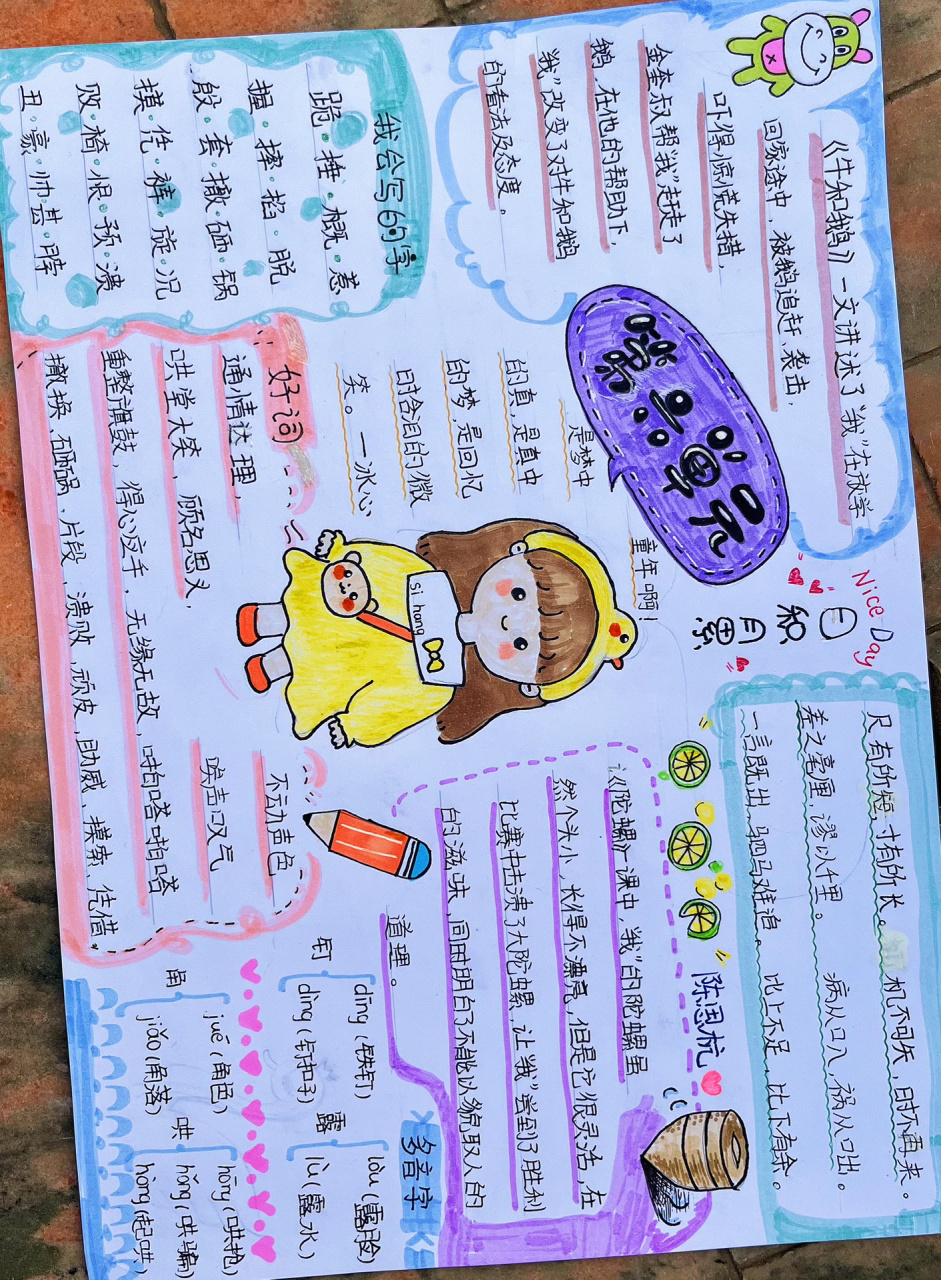 《牛和鹅》一文讲述了“我”在放学
回家途中，被鹅追赶、袭击，
吓得惊慌失措，
金奎叔帮“我”赶走了
鹅，在他的帮助下，
“我”改变了对牛和鹅
的看法及态度。
第六单元
Nice Day
日积月累
尺有所短，寸有所长。 机不可失，时不再来。
差之毫厘，谬以千里。 病从口入，祸从口出。
一言既出，驷马难追。 比上不足，比下有余。
我会写的字
跪·捶·概·惹
握·摔·掐·脱
段·套·撤·砸·锅
摸·凭·裤·旋·况
败·椅·恨·预·溃
丑·豪·帅·甚·脖
童年啊！
是梦中
的真，是真中
的梦，是回忆
时含泪的微
笑。—冰心
si hang
陈思杭
《陀螺》一课中，“我”的陀螺虽
然个头小，长得不漂亮，但是它很灵活，在
比赛中击溃了大陀螺，让“我”尝到了胜利
的滋味，同时明白了不能以貌取人的
道理。
好词
通情达理，
哄堂大笑，顾名思义，
重整旗鼓，得心应手，无缘无故，啪嗒啪嗒
撤换，砸锅，片段，溃败，顽皮，助威，摸索，凭借，
不动声色
唉声叹气
多音字
钉
dīng（铁钉）
dìng（钉扣子）
露
lòu（露脸）
lù（露水）
角
jué（角色）
jiǎo（角落）
哄
hōng（哄抢）
hǒng（哄骗）
hòng（起哄）